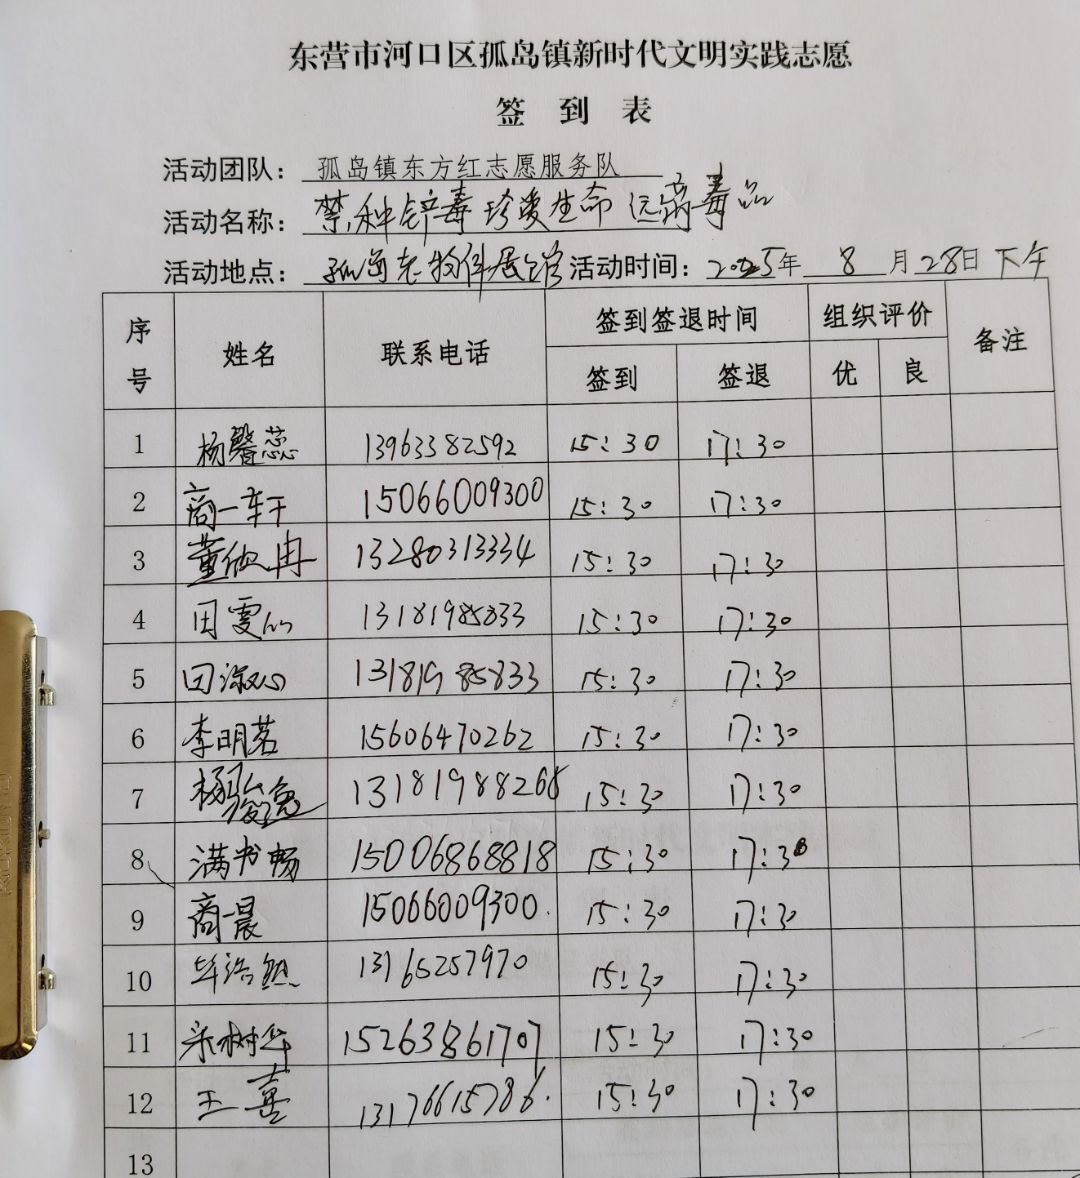 东营市河口区孤岛镇新时代文明实践志愿
签 到 表
活动团队：孤岛镇东方红志愿服务队
活动名称：禁种铲毒 珍爱生命 远离毒品
活动地点：孤岛老物件展馆 活动时间：2025年 8 月28日 下午
序号 姓名 联系电话 签到签退时间 组织评价 备注
签到 签退 优 良
1 杨馨蕊 13963382592 15:30 17:30
2 商一轩 15066009300 15:30 17:30
3 董欣冉 13280313334 15:30 17:30
4 田雯心 13181985833 15:30 17:30
5 田淑心 13181985833 15:30 17:30
6 李明茗 15606470262 15:30 17:30
7 杨骏逸 13181988265 15:30 17:30
8 满书畅 15006868818 15:30 17:30
9 商一晨 15066009300. 15:30 17:30
10 毕浩然 13165257970 15:30 17:30
11 宋树华 15263861707 15:30 17:30
12 王喜 13176615786. 15:30 17:30
13